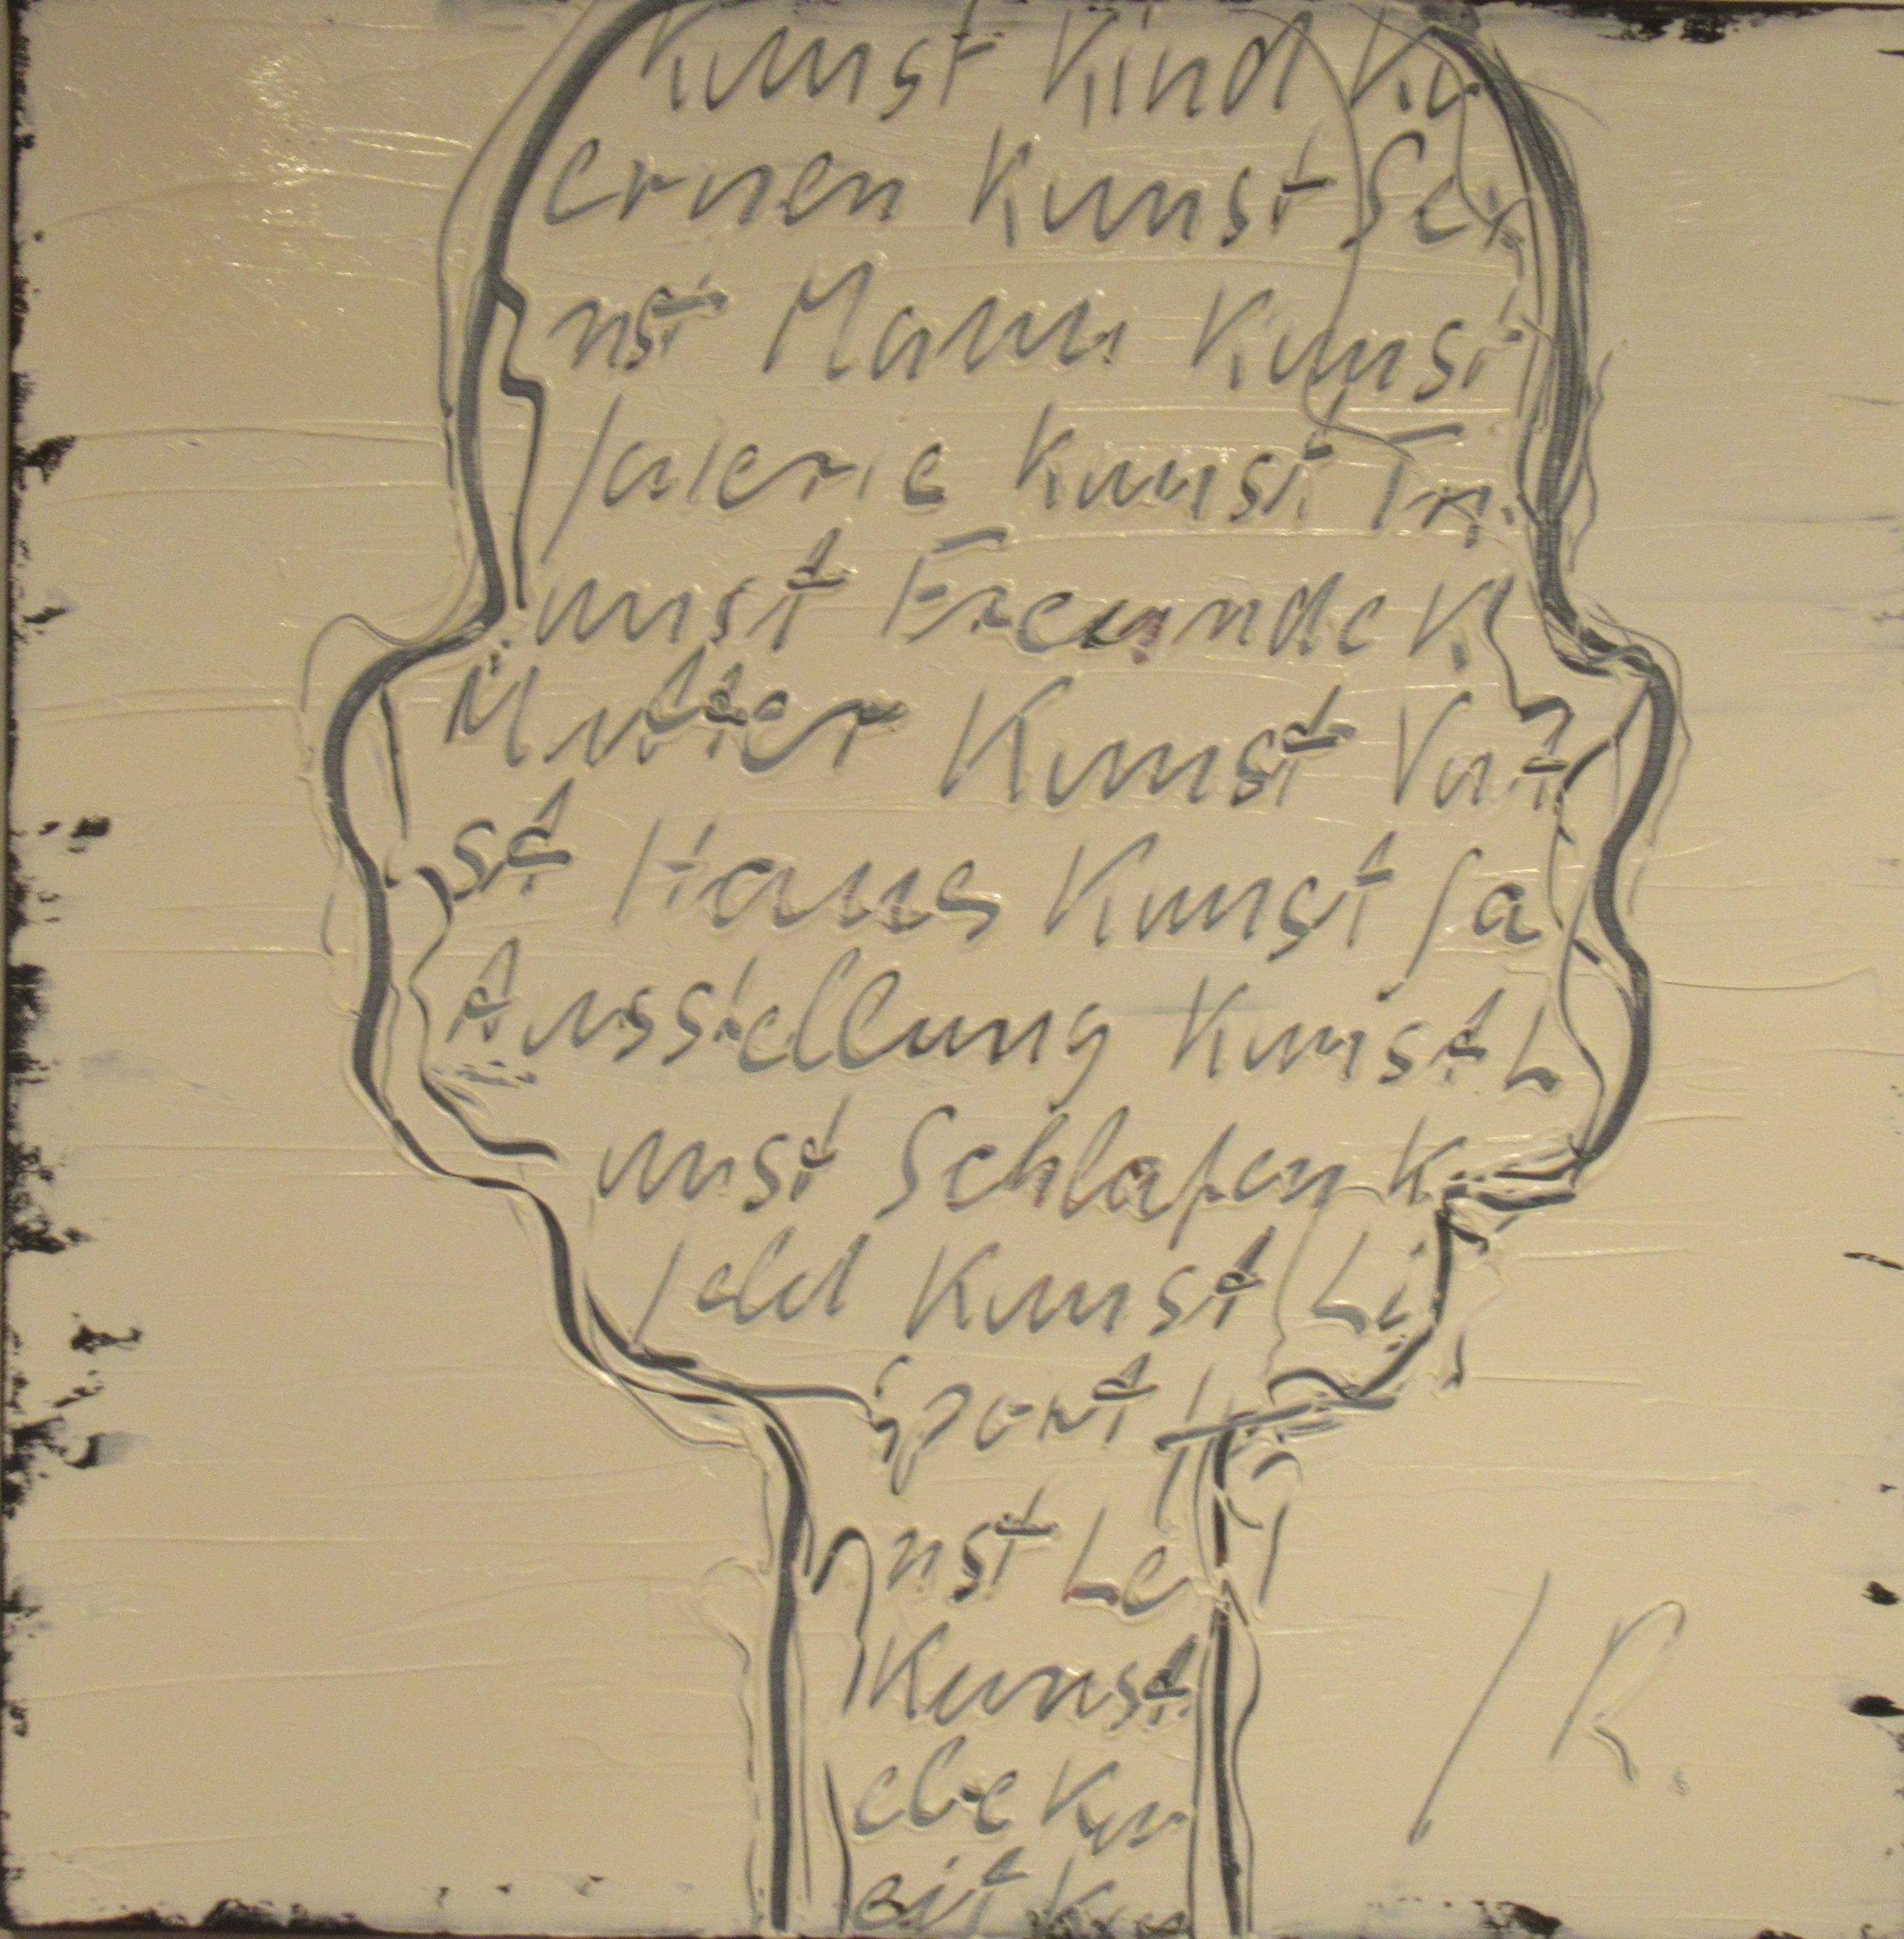 Kunst Kind Ku
ernen Kunst Sex
nst Mann Kunst
Galerie Kunst Tri
unst Freunde K
Mutter Kunst Vat
st Haus Kunst Ga
Ausstellung Kunst L
unst Schlafen K
Geld Kunst Li
Sport K
nst Le
Kunst
ebe Ku
eit Ku
R.